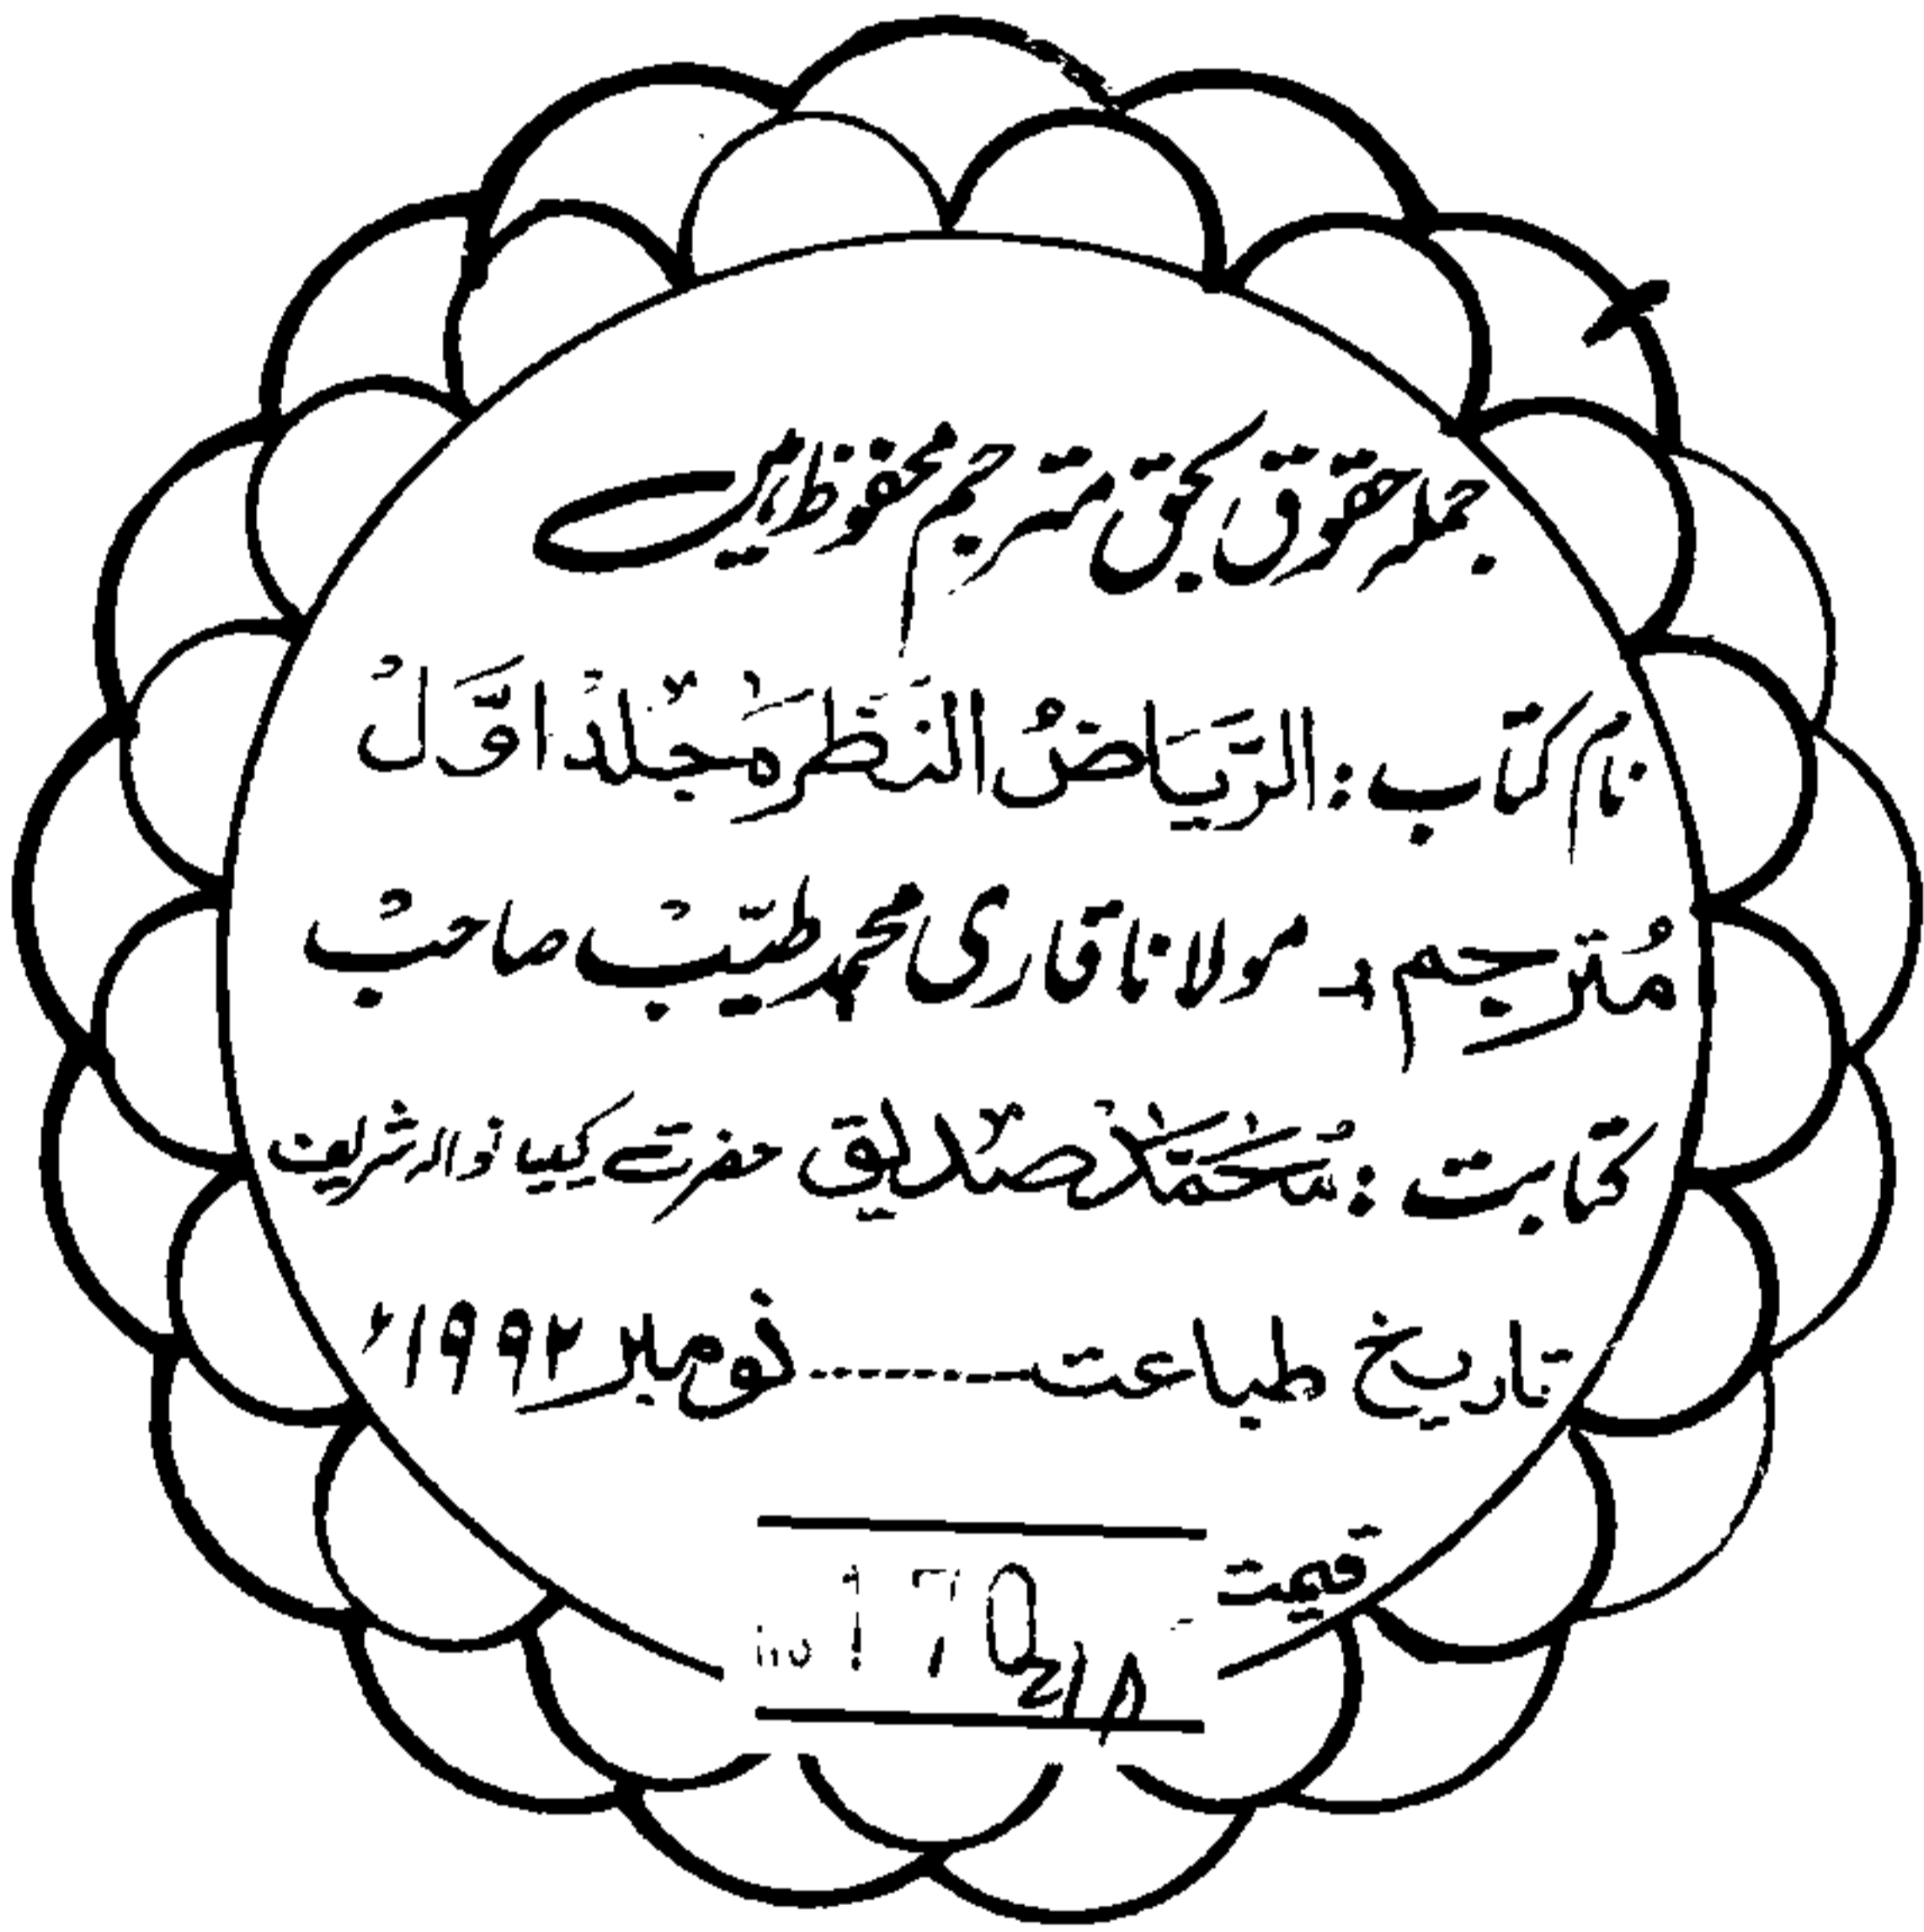 جملہ حقوق بحق مترجم محفوظ ہیں
نام کتاب : الرِّیَاضُ النَّضْرَہ مُجَلَّدْ اوَّلْ
مُترجم :۔ مولانا قاری محمد طیّب صاحب
کتابت : مُحَمَّد صِدِّیق حضرت کیلیانوالہ شریف
تاریخ طباعت ------ نومبر ۱۹۹۲ء
قیمت 170